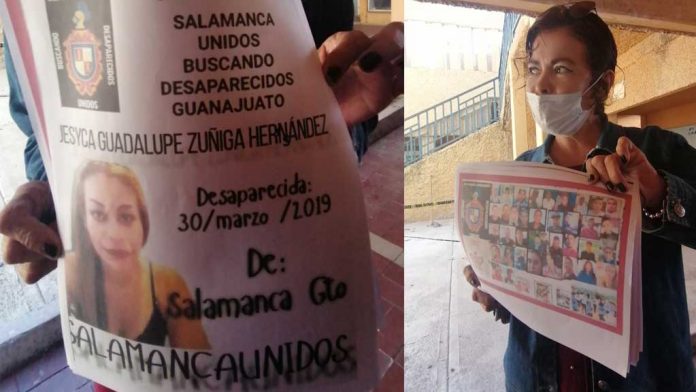 SALAMANCA
UNIDOS
BUSCANDO
DESAPARECIDOS
GUANAJUATO
DESAPARECIDOS
UNIDOS
JESYCA GUADALUPE ZUÑIGA HERNÁNDEZ
Desaparecida:
30/marzo /2019
De:
Salamanca Gto
SALAMANCAUNIDOS